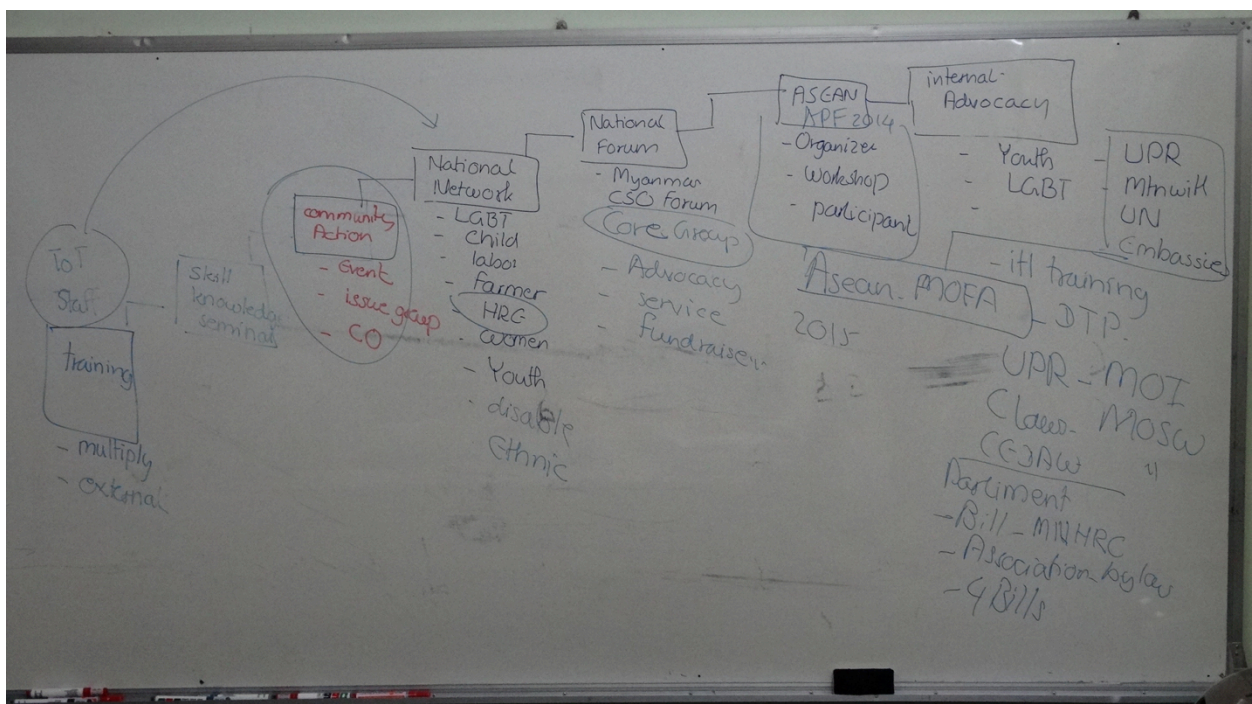 ToT
Staff
training
- multiply
- external
Skill
knowledge
seminar
community
Action
- Event
- issue group
- CO
National
Network
- LGBT
- child
- labor
- farmer
- HRE
- women
- Youth
- disable
Ethnic
National
Forum
- Myanmar
CSO Forum
Core Group
- Advocacy
- service
- fundraiser
ASEAN
APF 2014
- Organizer
- workshop
- participant
internal-
Advocacy
- Youth
- LGBT
-
- UPR
-
UN
Embassies
Asean. MOFA
2015
- itl training
- DTP.
UPR - MOI
MOSW
CEDAW "
Parliment
- Bill - MNHRC
- Association by law
- 4 Bills